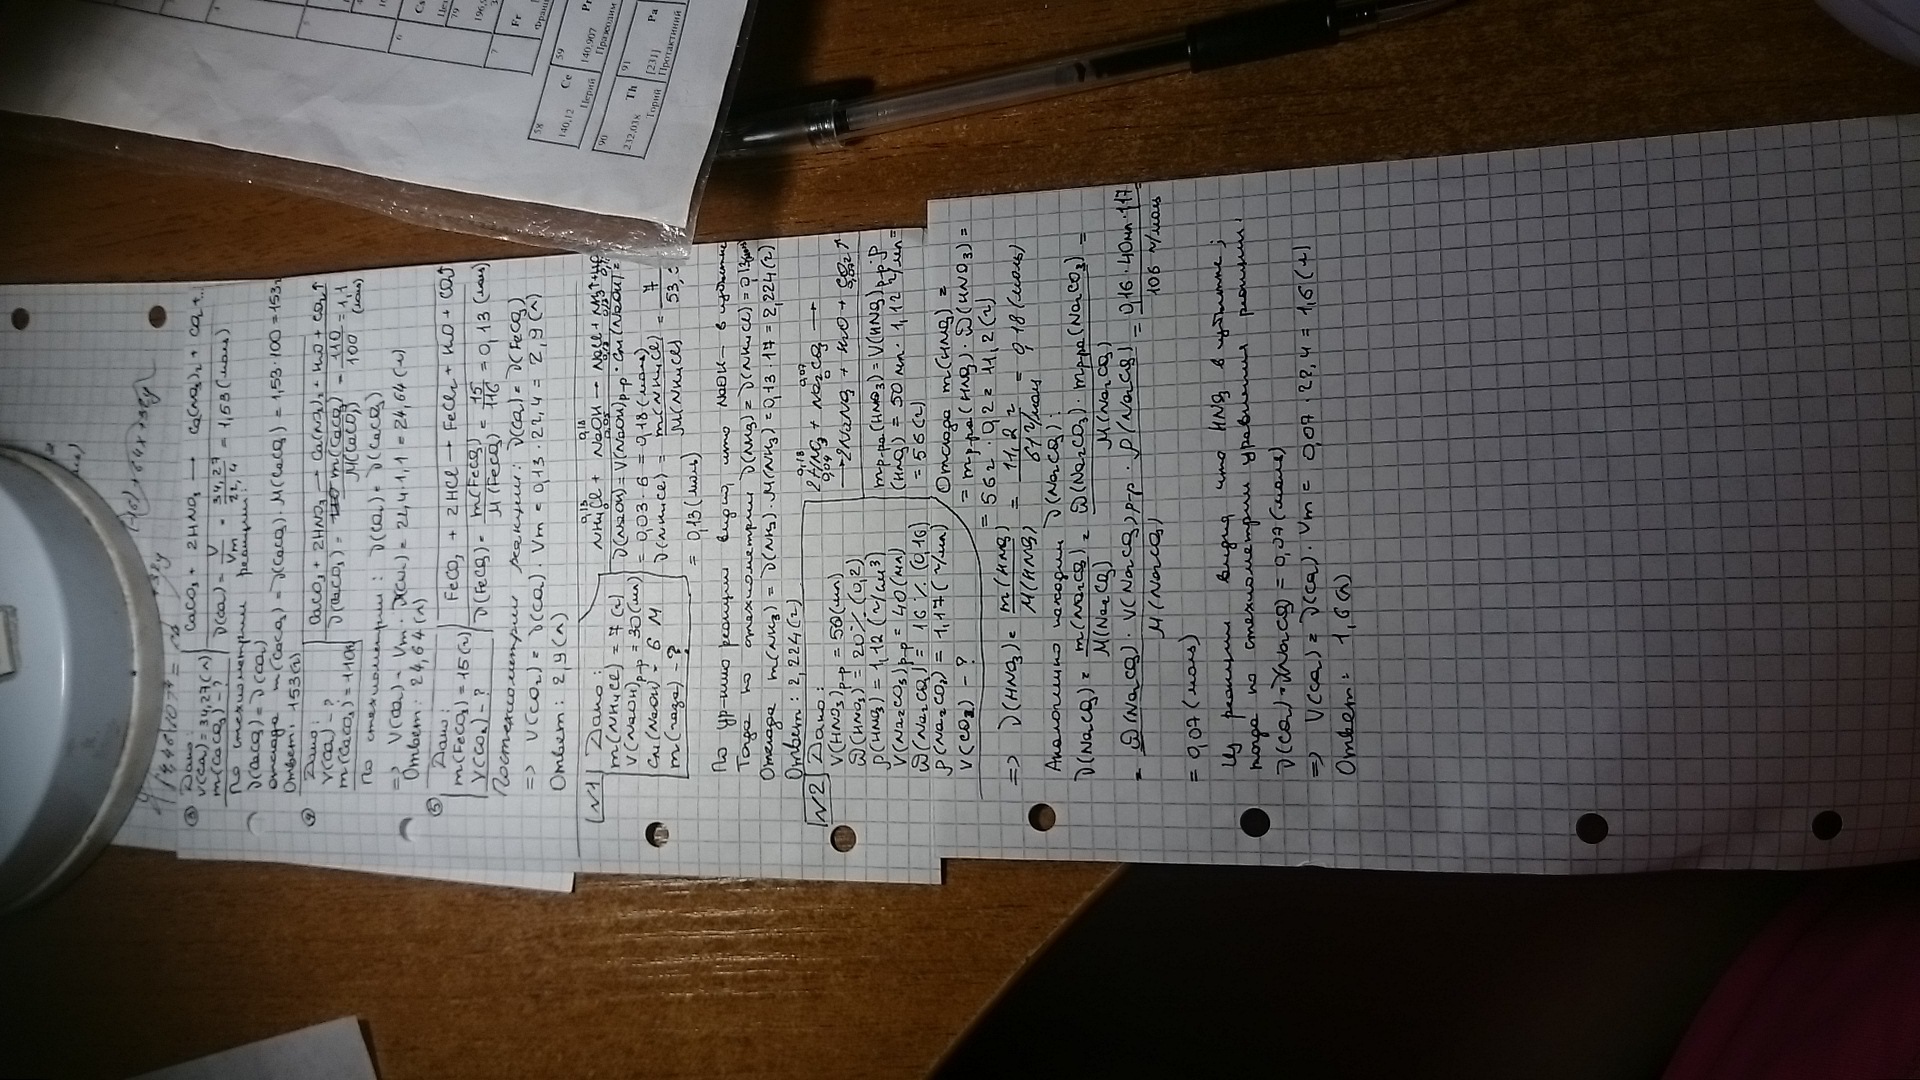 ③ Дано:
V(CO₂) = 34,27(л)
m(CaCO₃) - ?
CaCO₃ + 2HNO₃ → Ca(NO₃)₂ + CO₂ +
ν(CO₂) = V/Vm = 34,27/22,4 = 1,53 (моль)
По стехиометрии реакции:
ν(CaCO₃) = ν(CO₂)
отсюда m(CaCO₃) = ν(CaCO₃) · M(CaCO₃) = 1,53 · 100 = 153
Ответ: 153(г)
④ Дано:
V(CO₂) - ?
m(CaCO₃) = 110г
CaCO₃ + 2HNO₃ → Ca(NO₃)₂ + H₂O + CO₂↑
ν(CaCO₃) = m(CaCO₃)/M(CaCO₃) = 110/100 = 1,1 (моль)
По стехиометрии: ν(CO₂) = ν(CaCO₃)
=> V(CO₂) = Vm · ν(CO₂) = 22,4 · 1,1 = 24,64 (л)
Ответ: 24,64 (л)
⑤ Дано:
m(FeCO₃) = 15(г)
V(CO₂) - ?
FeCO₃ + 2HCl → FeCl₂ + H₂O + CO₂↑
ν(FeCO₃) = m(FeCO₃)/M(FeCO₃) = 15/116 = 0,13 (моль)
По стехиометрии реакции: ν(CO₂) = ν(FeCO₃)
=> V(CO₂) = ν(CO₂) · Vm = 0,13 · 22,4 = 2,9 (л)
Ответ: 2,9 (л)
N1 Дано:
m(NH₄Cl) = 7 (г)
V(NaOH)р-р = 30(мл)
Cм(NaOH) = 6 М
m(газа) - ?
0,13 0,18
NH₄Cl + NaOH → NaCl + NH₃↑ + H₂O
ν(NaOH) = V(NaOH)р-р · Cм(NaOH) =
= 0,03 · 6 = 0,18 (моль)
ν(NH₄Cl) = m(NH₄Cl)/M(NH₄Cl) = 7/53,
= 0,13 (моль)
По ур-нию реакции видно, что NaOH - в избытке
Тогда по стехиометрии ν(NH₃) = ν(NH₄Cl) = 0,13
Отсюда m(NH₃) = ν(NH₃) · M(NH₃) = 0,13 · 17 = 2,224(г)
Ответ: 2,224(г)
N2 Дано:
V(HNO₃)р-р = 50(мл)
ω(HNO₃) = 20% (0,2)
ρ(HNO₃) = 1,12 (г/см³)
V(Na₂CO₃)р-р = 40 (мл)
ω(Na₂CO₃) = 16% (0,16)
ρ(Na₂CO₃) = 1,17 (г/мл)
V(CO₂) - ?
0,18 0,07
2HNO₃ + Na₂CO₃ →
0,04 0
→ 2NaNO₃ + H₂O + CO₂↑
mр-ра(HNO₃) = V(HNO₃)р-р · ρ
(HNO₃) = 50 мл · 1,12 г/мл =
= 56(г)
Отсюда m(HNO₃) =
= mр-ра(HNO₃) · ω(HNO₃) =
= 56г · 0,2 = 11,2(г)
=> ν(HNO₃) = m(HNO₃)/M(HNO₃) = 11,2 г/61 г/моль = 0,18(моль)
Аналогично находим ν(Na₂CO₃):
ν(Na₂CO₃) = m(Na₂CO₃)/M(Na₂CO₃) = ω(Na₂CO₃) · mр-ра(Na₂CO₃)/M(Na₂CO₃) =
= ω(Na₂CO₃) · V(Na₂CO₃)р-р · ρ(Na₂CO₃)/M(Na₂CO₃) = 0,16 · 40мл · 1,17/106 г/моль
= 0,07 (моль)
Из реакции видно, что HNO₃ в избытке;
тогда по стехиометрии уравнения реакции
ν(CO₂) = ν(Na₂CO₃) = 0,07(моль)
=> V(CO₂) = ν(CO₂) · Vm = 0,07 · 22,4 = 1,6(л)
Ответ: 1,6(л)
79
196,9
7
Fr
58
Ce
140,12
Церий
59
Pr
140,907
Празеодим
90
Th
232,038
Торий
91
Pa
[231]
Протактиний